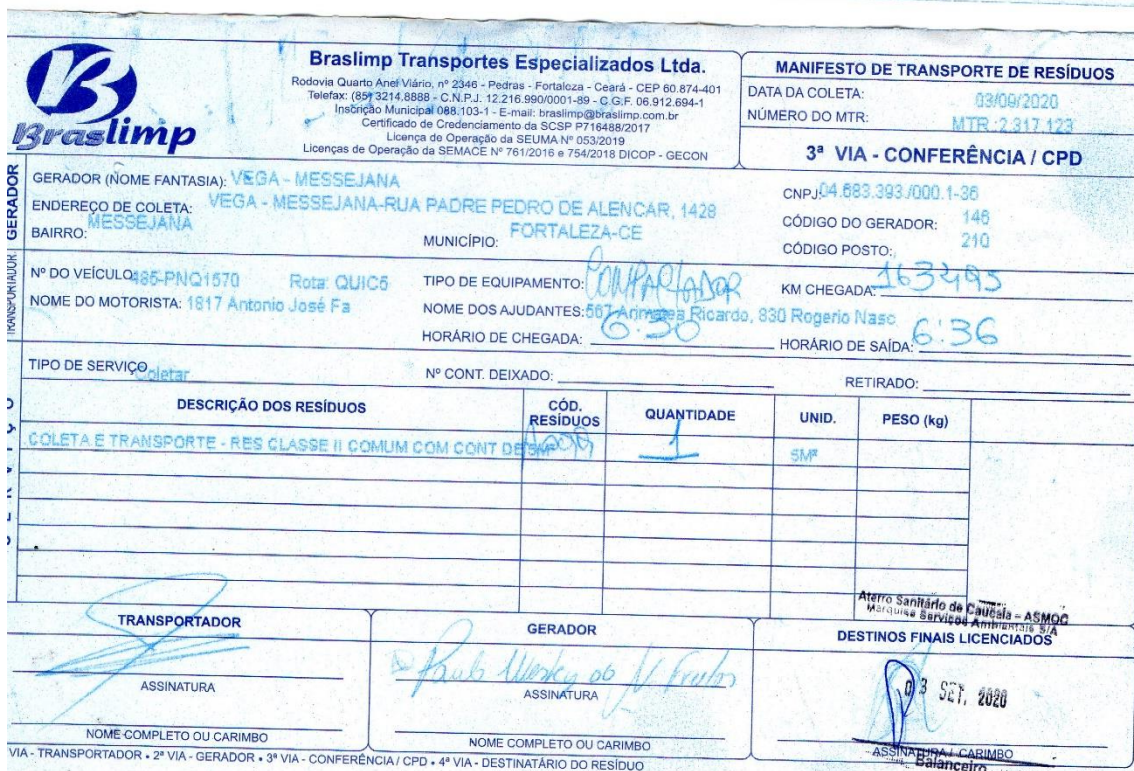 Braslimp
Braslimp Transportes Especializados Ltda.
Rodovia Quarto Anel Viário, nº 2346 - Pedras - Fortaleza - Ceará - CEP 60.874-401
Telefax: (85) 3214.8888 - C.N.P.J. 12.216.990/0001-89 - C.G.F. 06.912.694-1
Inscrição Municipal 088.103-1 - E-mail: braslimp@braslimp.com.br
Certificado de Credenciamento da SCSP P716488/2017
Licença de Operação da SEUMA Nº 053/2019
Licenças de Operação da SEMACE Nº 761/2016 e 754/2018 DICOP - GECON
MANIFESTO DE TRANSPORTE DE RESÍDUOS
DATA DA COLETA: 03/09/2020
NÚMERO DO MTR: MTR.:2.317.123
3ª VIA - CONFERÊNCIA / CPD
GERADOR
GERADOR (NOME FANTASIA): VEGA - MESSEJANA
CNPJ: 04.683.393./000.1-36
ENDEREÇO DE COLETA: VEGA - MESSEJANA-RUA PADRE PEDRO DE ALENCAR, 1428
CÓDIGO DO GERADOR: 146
BAIRRO: MESSEJANA MUNICÍPIO: FORTALEZA-CE
CÓDIGO POSTO: 210
TRANSPORTADOR
Nº DO VEÍCULO: 485-PNQ1570 Rota: QUIC5 TIPO DE EQUIPAMENTO: COMPACTADOR KM CHEGADA: 163495
NOME DO MOTORISTA: 1817 Antonio José Fa NOME DOS AJUDANTES: 567 Arimatea Ricardo, 830 Rogerio Nasc
HORÁRIO DE CHEGADA: 6:30 HORÁRIO DE SAÍDA: 6:36
TIPO DE SERVIÇO: Coletar Nº CONT. DEIXADO: RETIRADO:
DESCRIÇÃO DOS RESÍDUOS CÓD. RESÍDUOS QUANTIDADE UNID. PESO (kg)
COLETA E TRANSPORTE - RES CLASSE II COMUM COM CONT DE 5M³ 1 5M³
Aterro Sanitário de Caucaia - ASMOC
Marquise Serviços Ambientais S/A
TRANSPORTADOR GERADOR DESTINOS FINAIS LICENCIADOS
03 SET. 2020
ASSINATURA ASSINATURA ASSINATURA / CARIMBO
NOME COMPLETO OU CARIMBO NOME COMPLETO OU CARIMBO Balanceiro
VIA - TRANSPORTADOR • 2ª VIA - GERADOR • 3ª VIA - CONFERÊNCIA / CPD • 4ª VIA - DESTINATÁRIO DO RESÍDUO